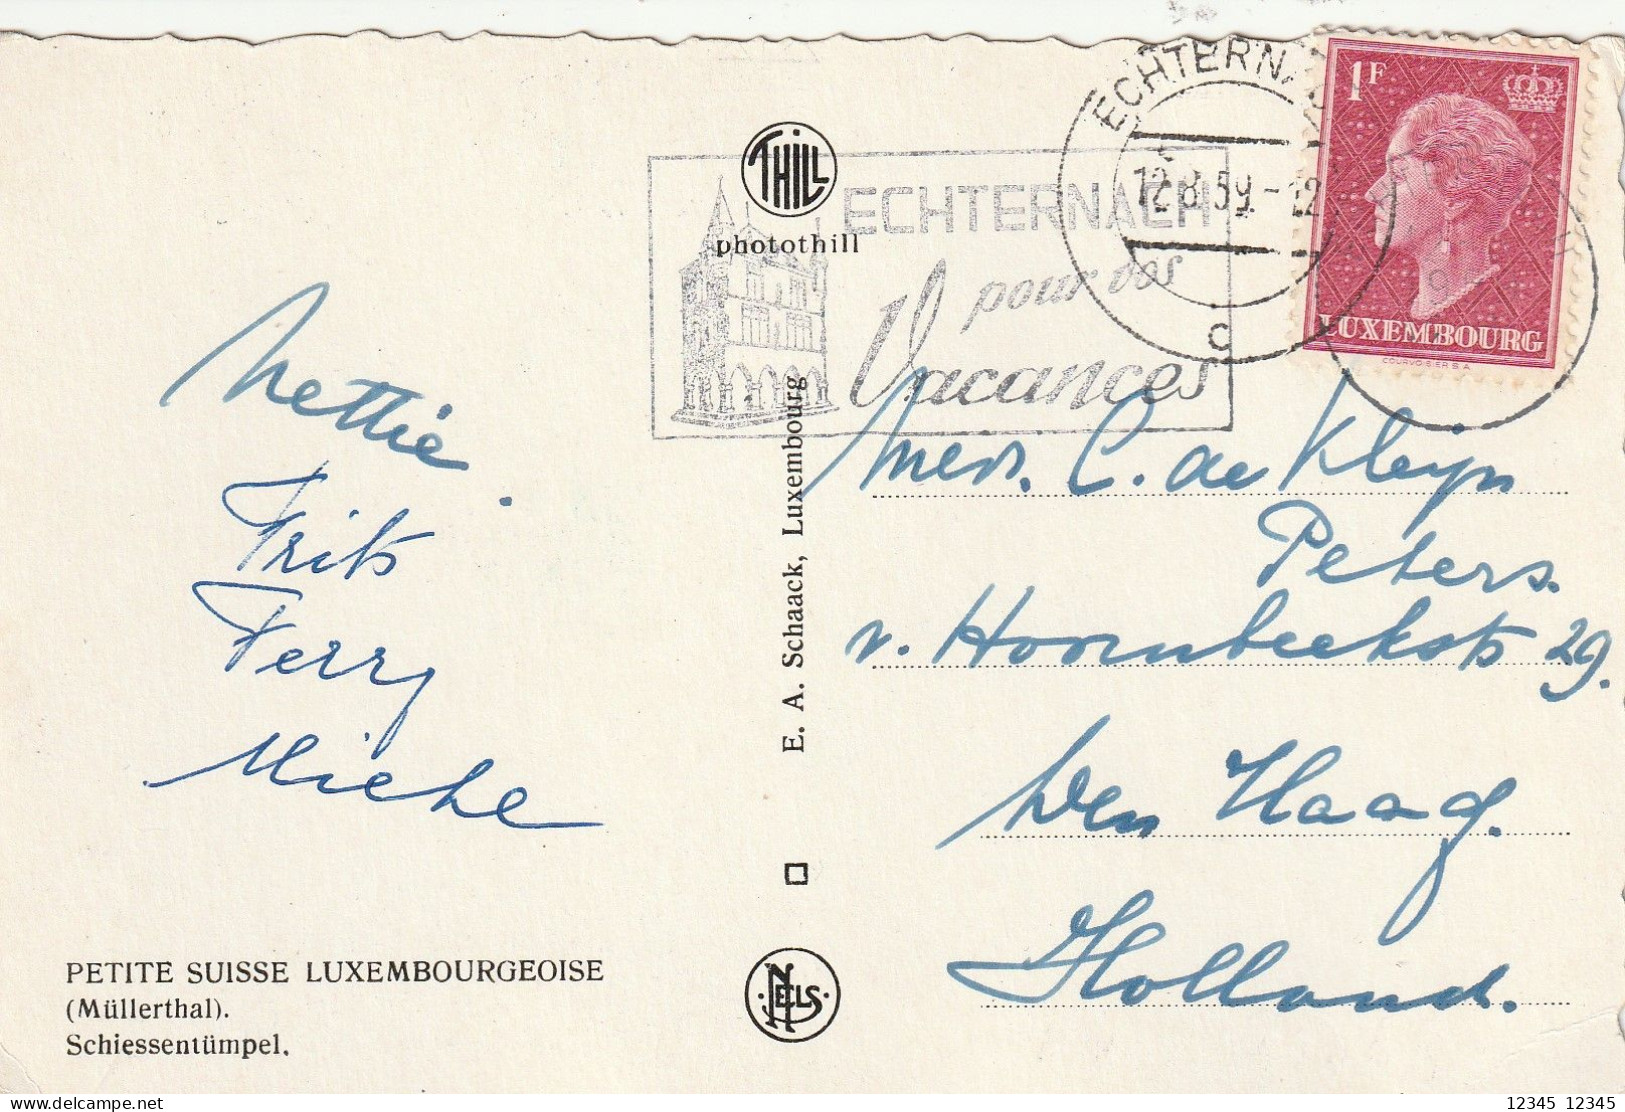 Nettie.
Frits
Ferry
Miebe
PETITE SUISSE LUXEMBOURGEOISE
(Müllerthal).
Schiessentümpel.
THILL
photothill
E. A. Schaack, Luxembourg
NELS
ECHTERNACH
pour vos
Vacances
ECHTERNA
12.8.59.-12
C
1F
LUXEMBOURG
COURVOISIER S.A.
Mevr. C. de Kleijn
Peters.
v. Hoornbeekstr 29.
Den Haag.
Holland.
12345 12345